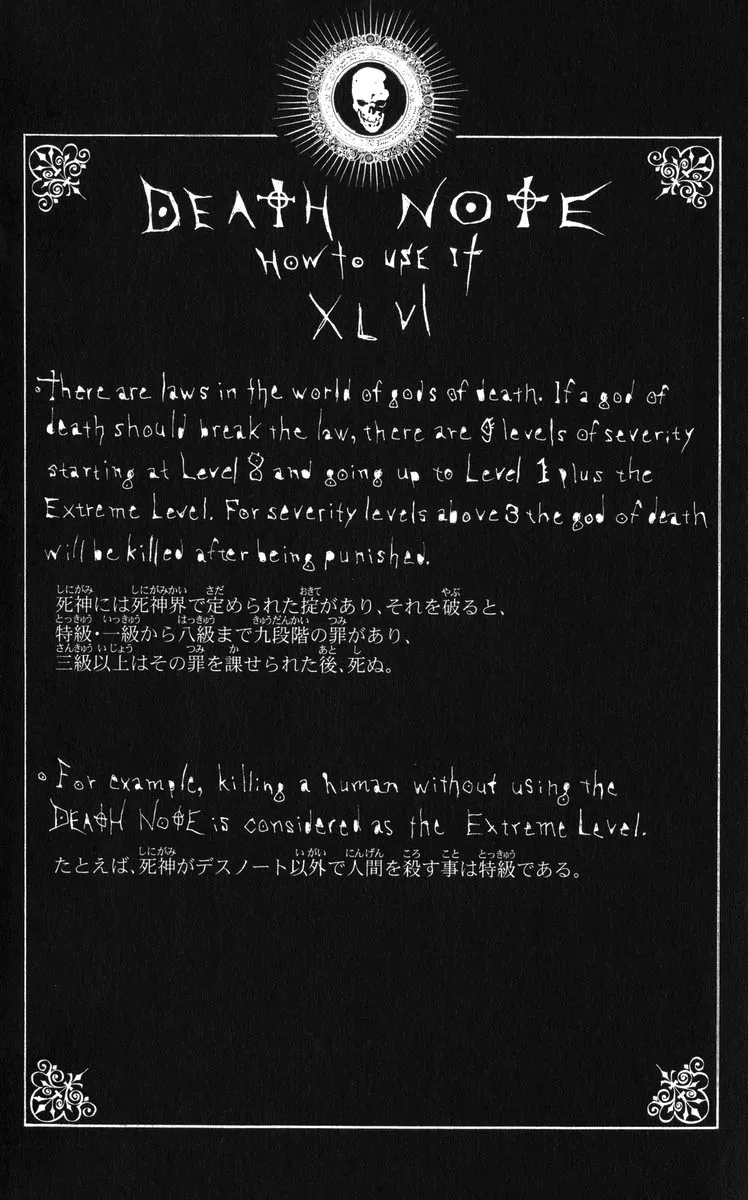 DEATH NOTE
HOW to USE IT
XLVI
There are laws in the world of gods of death. If a god of
death should break the law, there are 9 levels of severity
starting at Level 8 and going up to Level 1 plus the
Extreme Level. For severity levels above 3 the god of death
will be killed after being punished.
しにがみ しにがみかい さだ おきて やぶ
死神には死神界で定められた掟があり、それを破ると、
とっきゅう いっきゅう はっきゅう きゅうだんかい つみ
特級・一級から八級まで九段階の罪があり、
さんきゅう いじょう つみ か あと し
三級以上はその罪を課せられた後、死ぬ。
For example, killing a human without using the
DEATH NOTE is considered as the Extreme Level.
しにがみ いがい にんげん ころ こと とっきゅう
たとえば、死神がデスノート以外で人間を殺す事は特級である。